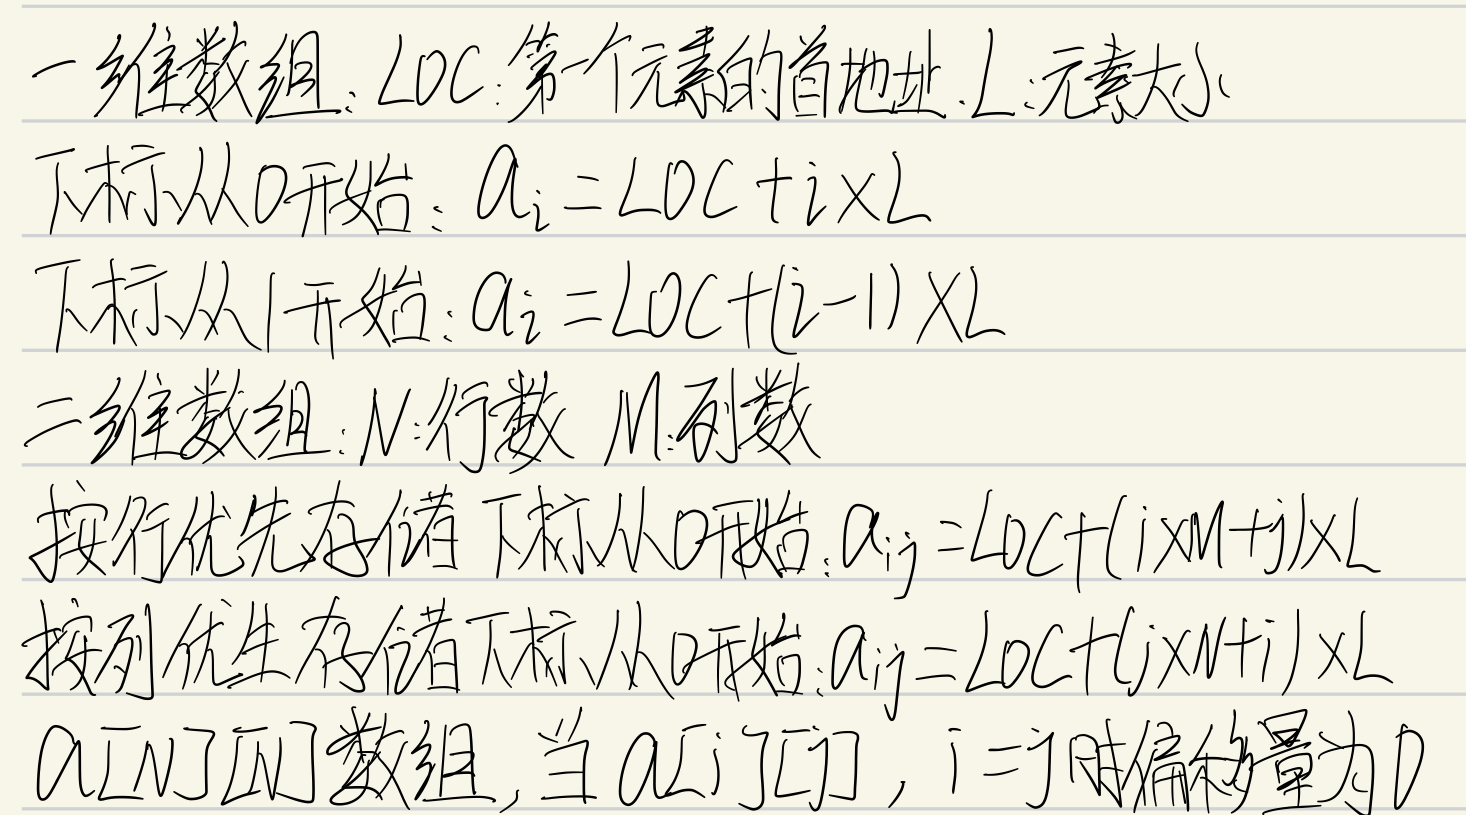 一维数组:LOC:第一个元素的首地址.L:元素大小
下标从0开始:ai=LOC+i×L
下标从1开始:ai=LOC+(i-1)×L
二维数组:N:行数 M:列数
按行优先存储 下标从0开始:aij=LOC+(i×M+j)×L
按列优生存储下标从0开始:aij=LOC+(j×N+i)×L
a[N][N]数组,当a[i][j],i=j时偏移量为0